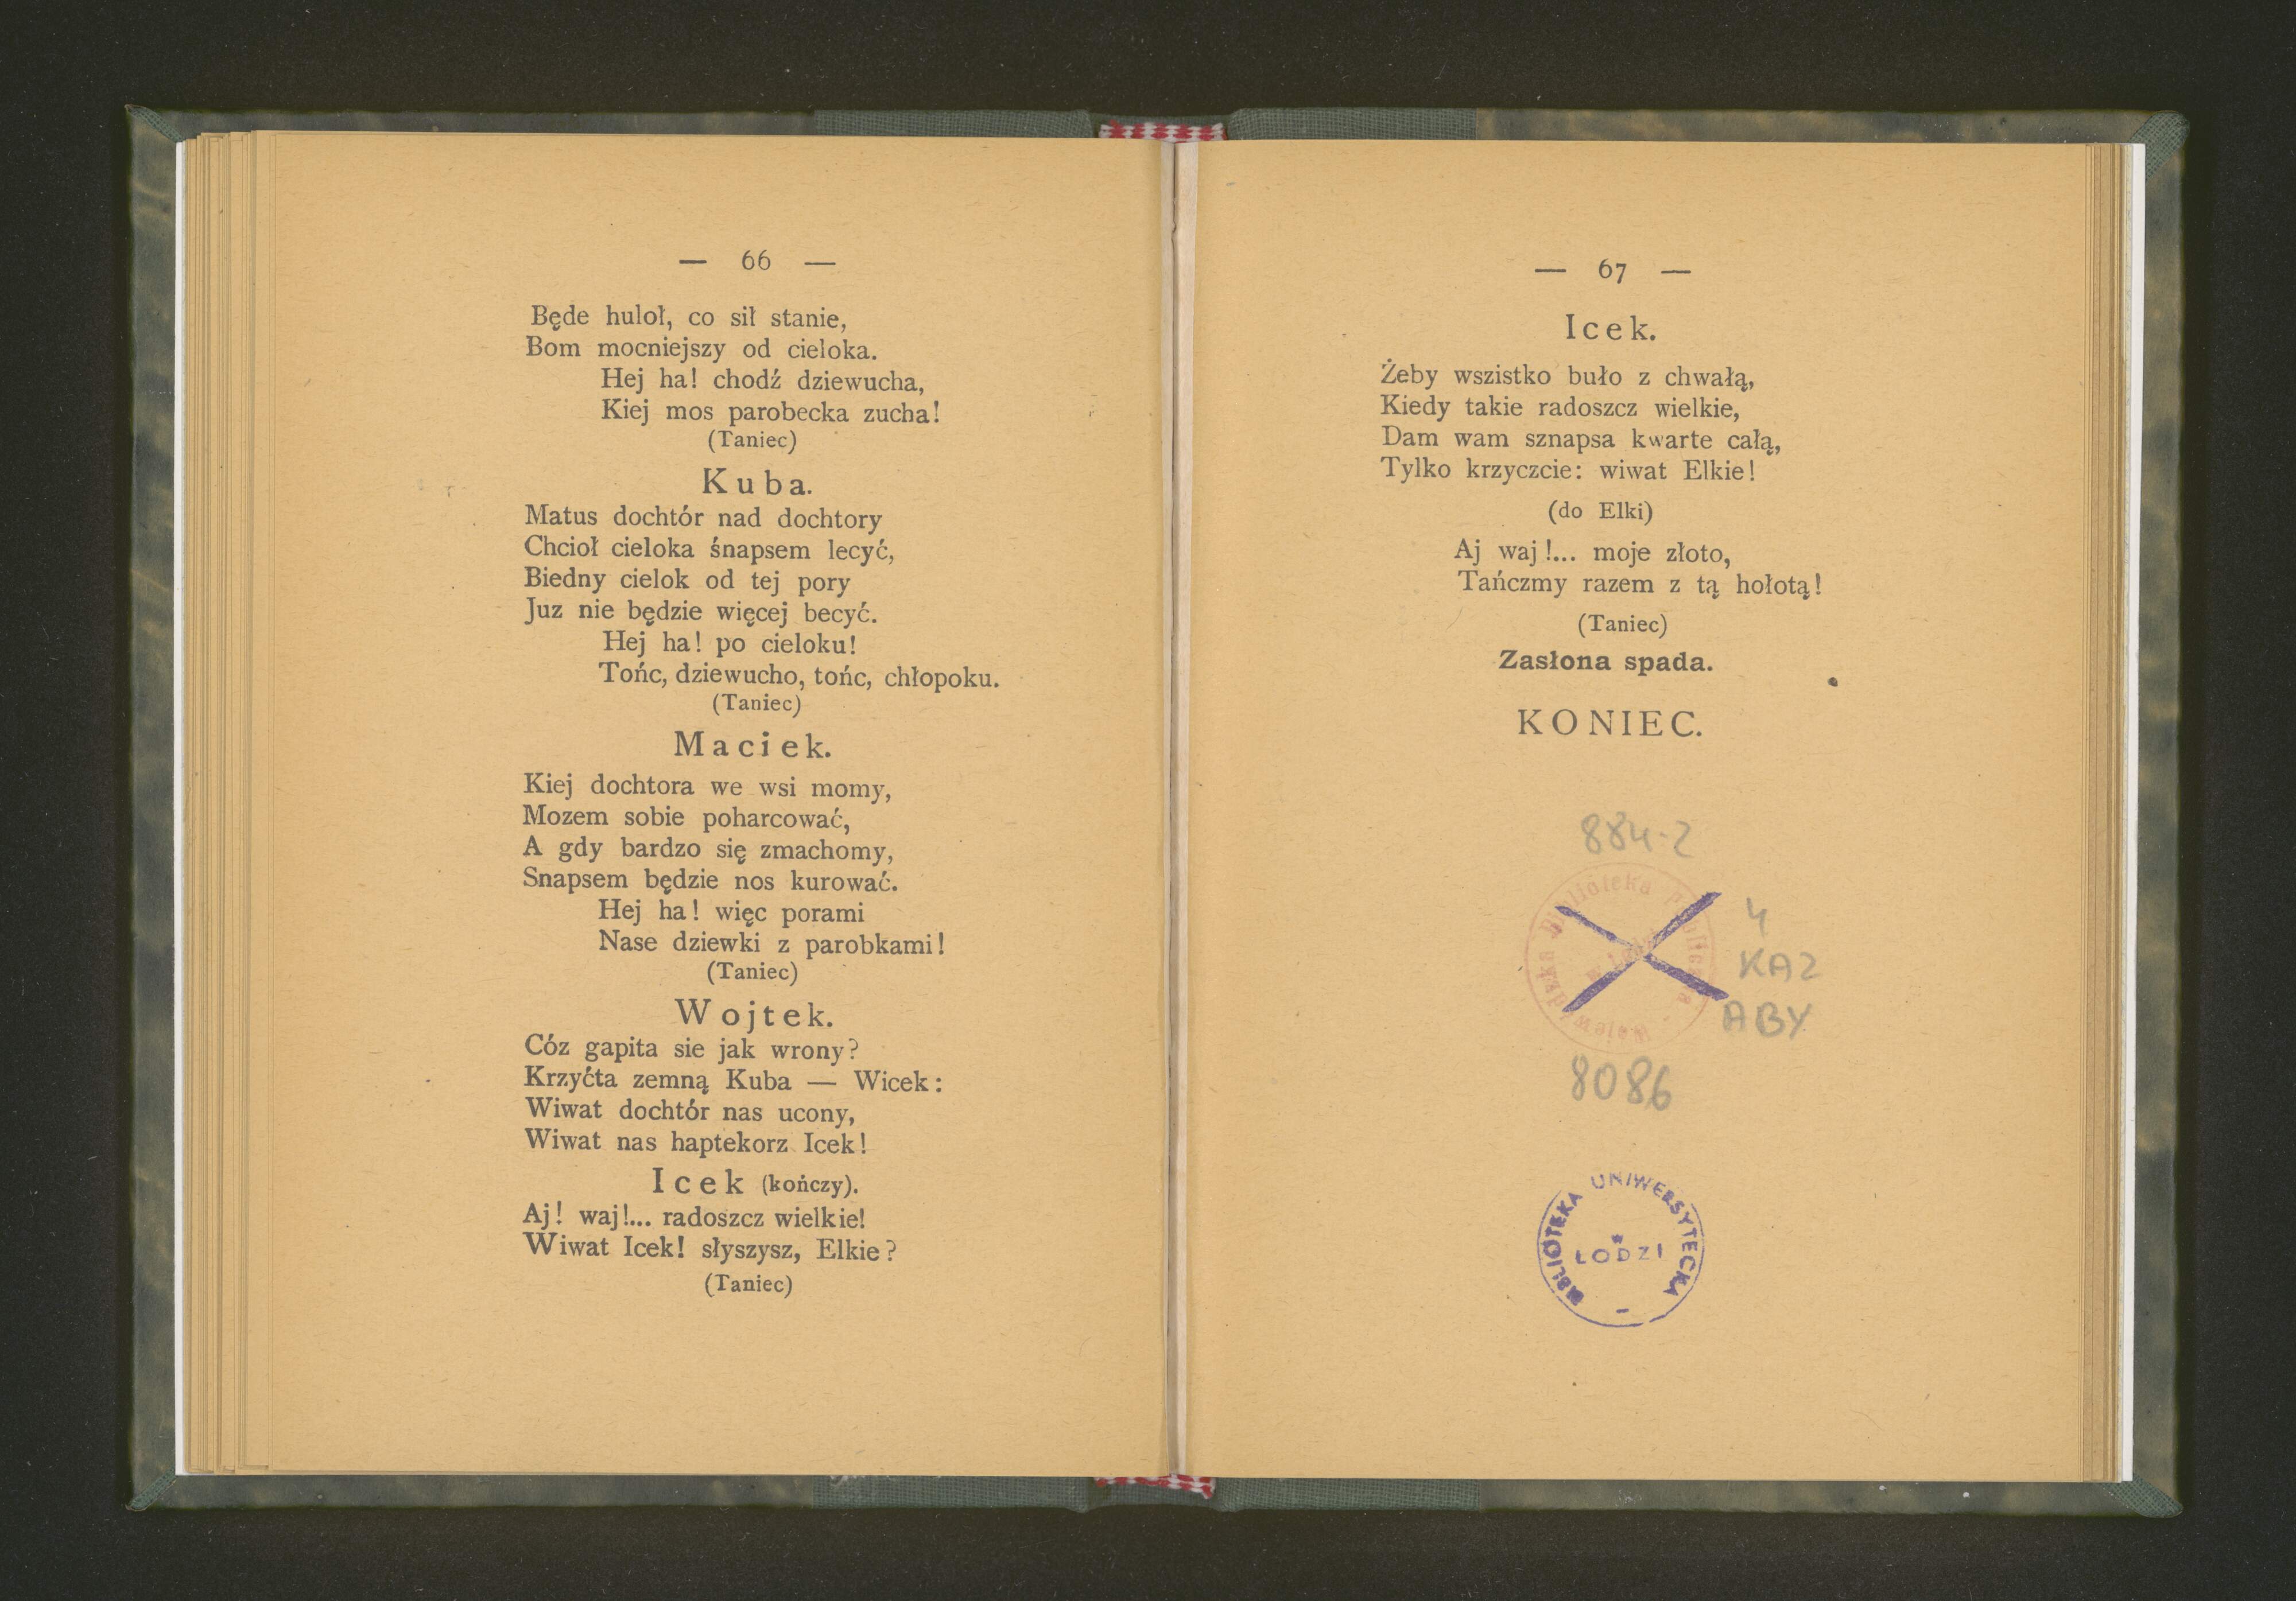 — 66 —
Będe huloł, co sił stanie,
Bom mocniejszy od cieloka.
Hej ha! chodź dziewucha,
Kiej mos parobecka zucha!
(Taniec)
Kuba.
Matus dochtór nad dochtory
Chcioł cieloka śnapsem lecyć,
Biedny cielok od tej pory
Juz nie będzie więcej becyć.
Hej ha! po cieloku!
Tońc, dziewucho, tońc, chłopoku.
(Taniec)
Maciek.
Kiej dochtora we wsi momy,
Mozem sobie poharcować,
A gdy bardzo się zmachomy,
Snapsem będzie nos kurować.
Hej ha! więc porami
Nase dziewki z parobkami!
(Taniec)
Wojtek.
Cóz gapita sie jak wrony?
Krzyćta zemną Kuba — Wicek:
Wiwat dochtór nas ucony,
Wiwat nas haptekorz Icek!
Icek (kończy).
Aj! waj!... radoszcz wielkie!
Wiwat Icek! słyszysz, Elkie?
(Taniec)
— 67 —
Icek.
Żeby wszistko buło z chwałą,
Kiedy takie radoszcz wielkie,
Dam wam sznapsa kwarte całą,
Tylko krzyczcie: wiwat Elkie!
(do Elki)
Aj waj!... moje złoto,
Tańczmy razem z tą hołotą!
(Taniec)
Zasłona spada.
KONIEC.
884-2
Biblioteka Publiczna
4
KAZ
ABY
8086
BIBLIOTEKA UNIWERSYTECKA
w
ŁODZI